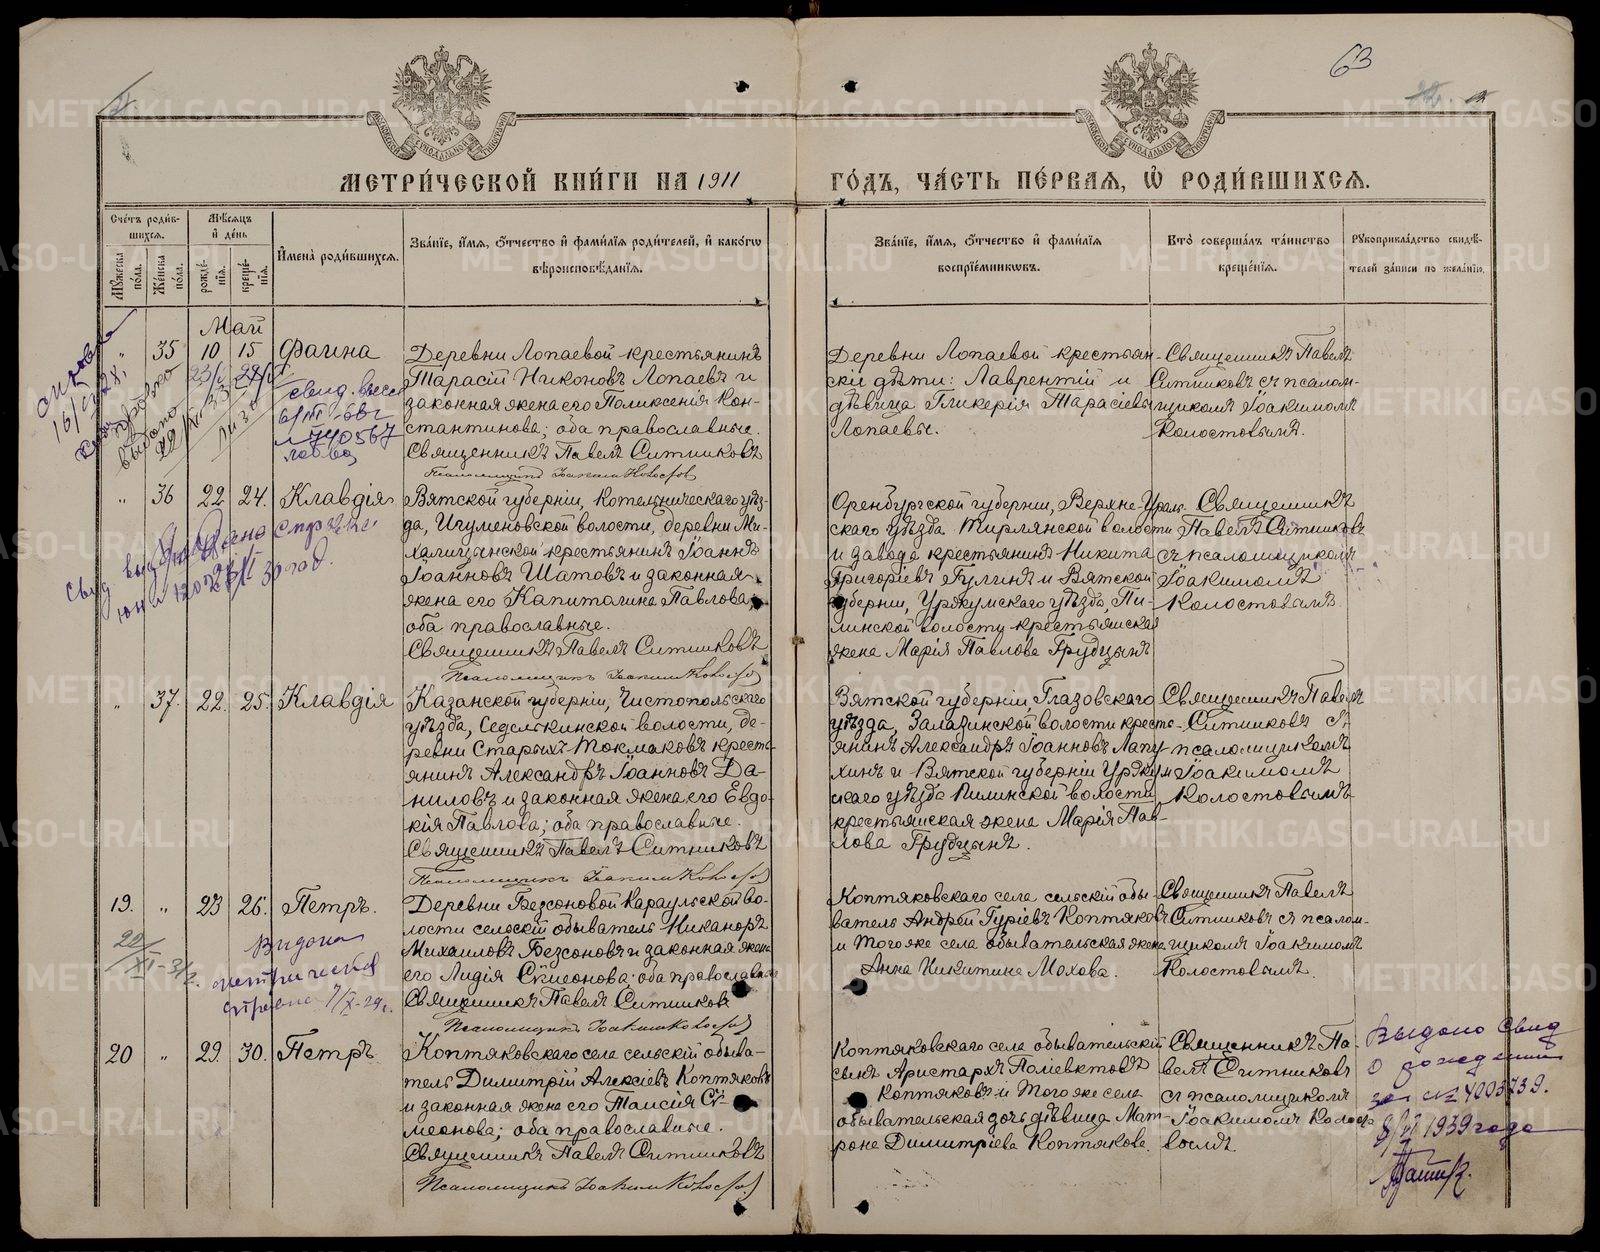 63
МЕТРИ́ЧЕСКОЙ КНИ́ГИ НА 1911 ГО́ДЪ, ЧА́СТЬ ПЕ́РВАЯ, Ѡ҆ РОДИ́ВШИХСЯ.
Сче́тъ роди́в-
шихся.
Мꙋ́жеска по́ла.
Же́нска по́ла.
Мѣ́сяцъ и҆ де́нь
рожде́-
нїя.
креще́-
нїя.
И҆мена̀ роди́вшихся.
Зва́нїе, и҆́мя, ѻ҆́тчество и҆ фами́лїя роди́телей, и҆ како́гѡ
вѣроисповѣ́данїя.
Зва́нїе, и҆́мя, ѻ҆́тчество и҆ фами́лїя
воспрїе́мникѡвъ.
Кто̀ соверша́лъ та́инство
креще́нїя.
Рꙋкоприкла́дство свидѣ́-
телей за́писи по жела́нїю.
Май
„ 35 10 15 Фаина
Деревни Лопаевой крестьянинъ
Тарасій Никоновъ Лопаевъ и
законная жена его Поликсенія Кон-
стантинова; оба православные.
Священникъ Павелъ Ситниковъ
Псаломщикъ Іоакимъ
Деревни Лопаевой крестьян-
скіе дѣти: Лаврентій и
дѣвица Гликерія Тарасіевы
Лопаевы.
Священникъ Павелъ
Ситниковъ съ псалом-
щикомъ Іоакимомъ
Колостовымъ.
„ 36 22 24. Клавдія
Вятской губерніи, Котельническаго уѣз-
да, Игуменовской волости, деревни Ми-
халицынской крестьянинъ Іоаннъ
Іоанновъ Шатовъ и законная
жена его Капиталина Павлова
оба православные.
Священникъ Павелъ Ситниковъ
Псаломщикъ Іоакимъ
Оренбургской губерніи, Верхне-Ураль-
скаго уѣзда Тирлянской волости
и завода крестьянинъ Никита
Григоріевъ Гулинъ и Вятской
губерніи, Уржумскаго уѣзда, Пи-
линской волости крестьянская
жена Марія Павлова Грудцынъ
Священникъ
Павелъ Ситниковъ
съ псаломщикомъ
Іоакимомъ
Колостовымъ
„ 37. 22. 25. Клавдія
Казанской губерніи, Чистопольскаго
уѣзда, Седелькинской волости, де-
ревни Старыхъ Токмаковъ кресть-
янинъ Александръ Іоанновъ Да-
ниловъ и законная жена его Евдо-
кія Павлова; оба православные.
Священникъ Павелъ Ситниковъ
Псаломщикъ Іоакимъ
Вятской губерніи, Глазовскаго
уѣзда, Залазинской волости кресть-
янинъ Александръ Іоанновъ Лапу-
хинъ и Вятской губерніи Уржум-
скаго уѣзда Пилинской волости
крестьянская жена Марія Пав-
лова Грудцынъ.
Священникъ Павелъ
Ситниковъ съ
псаломщикомъ
Іоакимомъ
Колостовымъ
19. „ 23 26. Петръ.
Деревни Безсоновой Караульской во-
лости сельскій обыватель Никаноръ
Михаиловъ Безсоновъ и законная жена
его Лидія Сѵмеонова; оба православные
Священникъ Павелъ Ситниковъ
Псаломщикъ Іоакимъ
Коптяковскаго села сельскій обы-
ватель Андрей Гуріевъ Коптяковъ
и того же села обывательская жена
Анна Никитина Мохова.
Священникъ Павелъ
Ситниковъ съ псалом-
щикомъ Іоакимомъ
Колостовымъ.
Выдана
метрическая
20 „ 29. 30. Петръ
Коптяковскаго села сельскій обыва-
тель Димитрій Алексіевъ Коптяковъ
и законная жена его Таисія Сѵ-
меонова; оба православные.
Священникъ Павелъ Ситниковъ
Псаломщикъ Іоакимъ
Коптяковскаго села обывательскій
сынъ Аристархъ Поліевктовъ
Коптяковъ и того же села
обывательская дочь дѣвица Мат-
рона Димитріева Коптякова.
Священникъ Па-
велъ Ситниковъ
съ псаломщикомъ
Іоакимомъ Колосто-
вымъ
Выдано свид
о рождении
за № 4003739.
8/VI 1939 года
METRIKI.GASO-URAL.RU